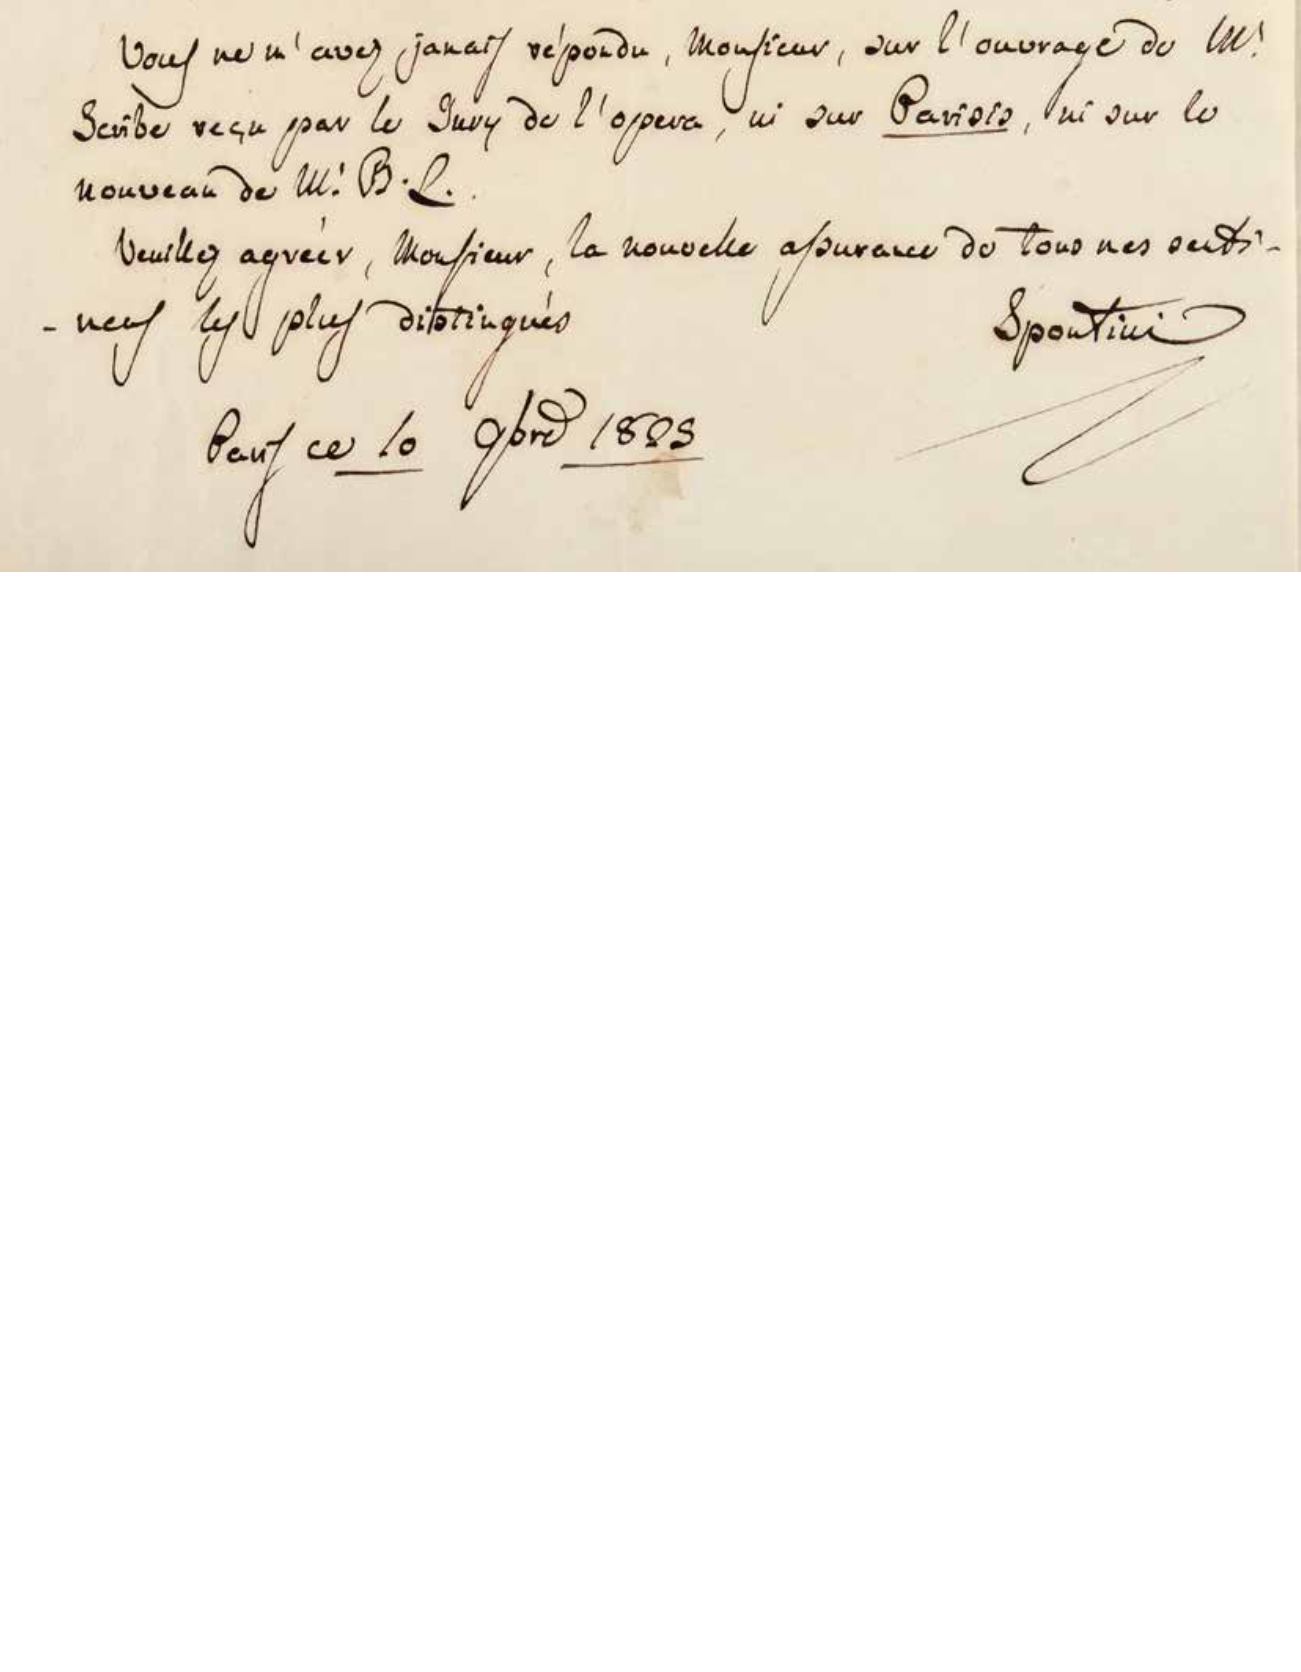 Vous ne m'avez jamais répondu, Monsieur, sur l'ouvrage de Mr
Scribe reçu par le Jury de l'opera, ni sur Parisis, ni sur le
nouveau de Mr B. L.
Veuillez agréer, Monsieur, la nouvelle assurance de tous mes senti-
-mens les plus distingués
Spontini
Paris ce 10 9bre